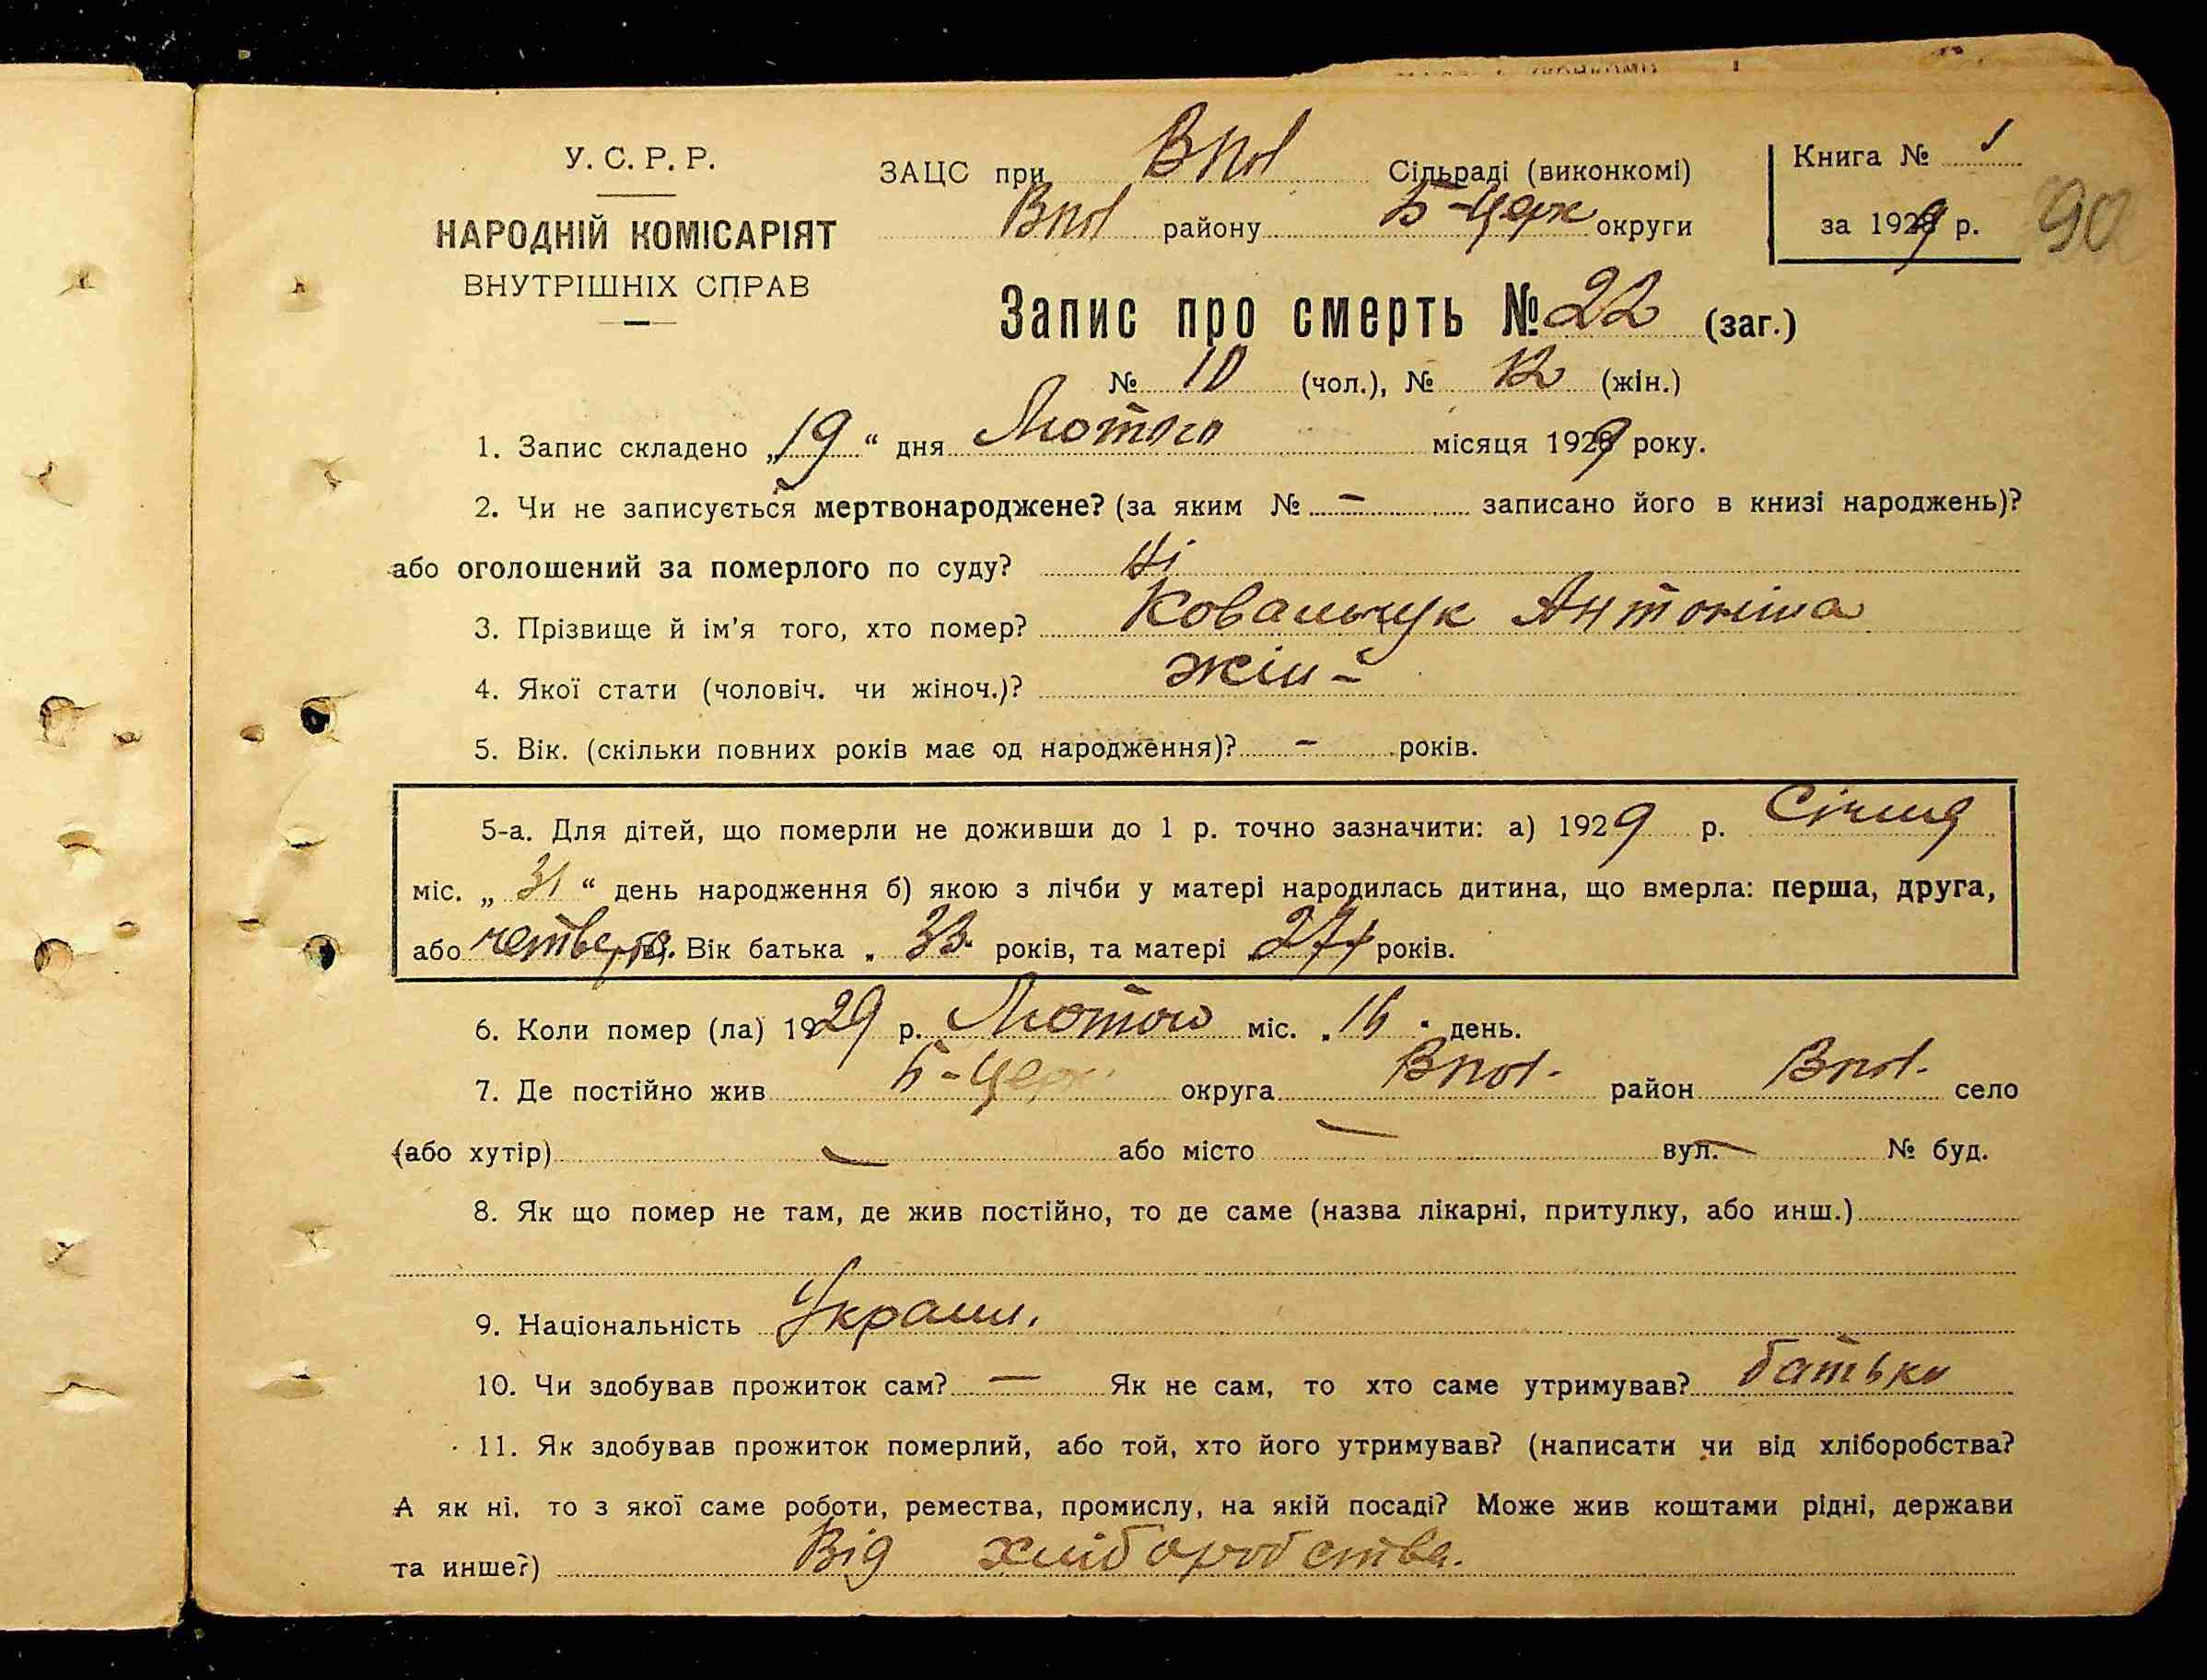 У. С. Р. Р.
НАРОДНІЙ КОМІСАРІЯТ
ВНУТРІШНІХ СПРАВ
ЗАЦС при Впол Сільраді (виконкомі)
Впол району Б-Церк округи
Книга № 1
за 1929 р.
90
Запис про смерть № 22 (заг.)
№ 10 (чол.), № 12 (жін.)
1. Запис складено „19“ дня Лютого місяця 1929 року.
2. Чи не записується мертвонароджене? (за яким № — записано його в книзі народжень)?
або оголошений за померлого по суду? Ні
3. Прізвище й ім'я того, хто помер? Ковальчук Антоніна
4. Якої стати (чоловіч. чи жіноч.)? жін-
5. Вік. (скільки повних років має од народження)? — років.
5-а. Для дітей, що померли не доживши до 1 р. точно зазначити: а) 1929 р. Січня
міс. „31“ день народження б) якою з лічби у матері народилась дитина, що вмерла: перша, друга,
або четверта. Вік батька „33 років, та матері 27 років.
6. Коли помер (ла) 1929 р. Лютого міс. „16“ день.
7. Де постійно жив Б-Церк округа Впол. район Впол. село
(або хутір) — або місто — вул. — № буд.
8. Як що помер не там, де жив постійно, то де саме (назва лікарні, притулку, або инш.)
9. Національність Україн.
10. Чи здобував прожиток сам? — Як не сам, то хто саме утримував? батько
11. Як здобував прожиток померлий, або той, хто його утримував? (написати чи від хліборобства?
А як ні, то з якої саме роботи, ремества, промислу, на якій посаді? Може жив коштами рідні, держави
та инше?) Від хліборобства.